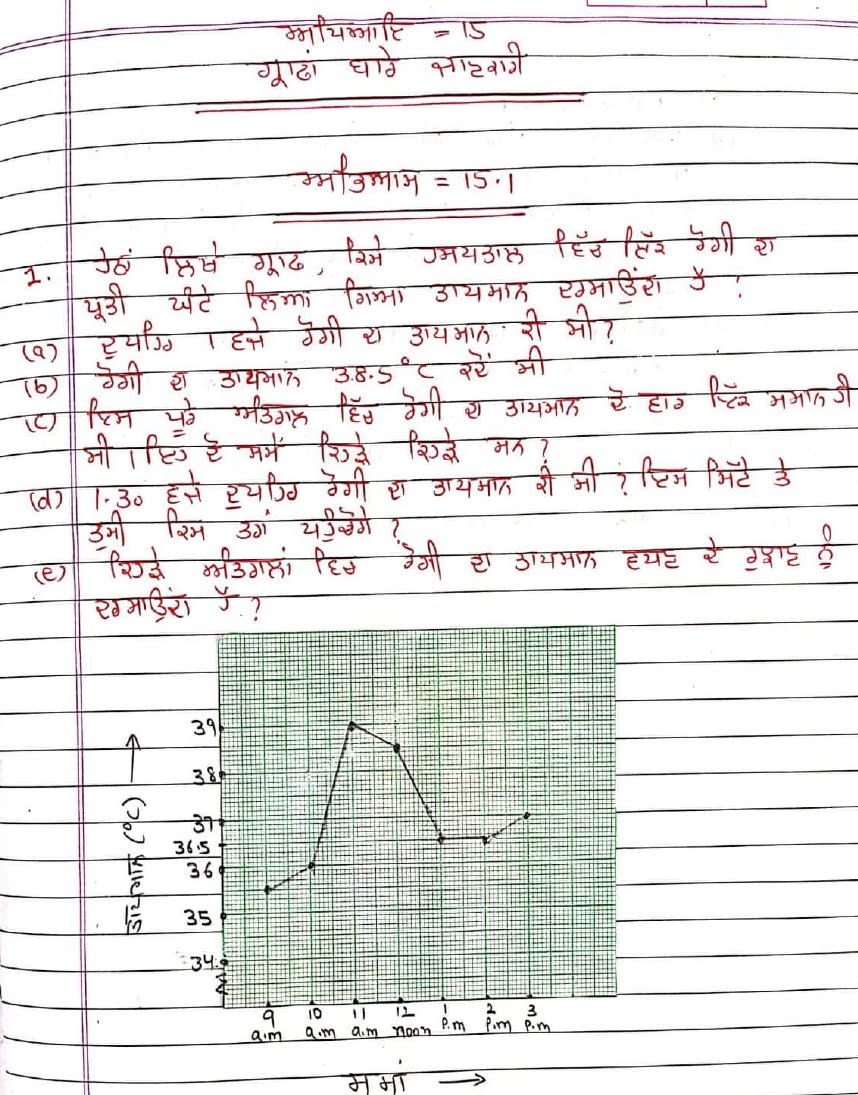 ਅਧਿਆਇ = 15
ਗ੍ਰਾਫਾਂ ਬਾਰੇ ਜਾਣਕਾਰੀ
ਅਭਿਆਸ = 15.1
1. ਹੇਠਾਂ ਲਿਖੇ ਗ੍ਰਾਫ, ਕਿਸੇ ਹਸਪਤਾਲ ਵਿੱਚ ਇੱਕ ਰੋਗੀ ਦਾ
ਪ੍ਰਤੀ ਘੰਟੇ ਲਿਆ ਗਿਆ ਤਾਪਮਾਨ ਦਰਸਾਉਂਦਾ ਹੈ ?
(a) ਦੁਪਹਿਰ 1 ਵਜੇ ਰੋਗੀ ਦਾ ਤਾਪਮਾਨ ਕੀ ਸੀ ?
(b) ਰੋਗੀ ਦਾ ਤਾਪਮਾਨ 38.5°C ਕਦੋਂ ਸੀ
(c) ਇਸ ਪੂਰੇ ਅੰਤਰਾਲ ਵਿੱਚ ਰੋਗੀ ਦਾ ਤਾਪਮਾਨ ਦੋ ਵਾਰ ਇੱਕ ਸਮਾਨ ਹੀ
ਸੀ । ਇਹ ਦੋ ਸਮੇਂ ਕਿਹੜੇ ਕਿਹੜੇ ਸਨ ?
(d) 1.30 ਵਜੇ ਦੁਪਹਿਰ ਰੋਗੀ ਦਾ ਤਾਪਮਾਨ ਕੀ ਸੀ ? ਇਸ ਸਿੱਟੇ ਤੇ
ਤੁਸੀ ਕਿਸ ਤਰਾਂ ਪਹੁੰਚੋਗੇ ?
(e) ਕਿਹੜੇ ਅੰਤਰਾਲਾਂ ਵਿਚ ਰੋਗੀ ਦਾ ਤਾਪਮਾਨ ਵਧਣ ਦੇ ਰੁਝਾਣ ਨੂੰ
ਦਰਸਾਉਂਦਾ ਹੈ ?
ਤਾਪਮਾਨ (°C)
39
38
37
36.5
36
35
34
9 10 11 12 1 2 3
a.m a.m a.m noon P.m P.m P.m
ਸਮਾਂ